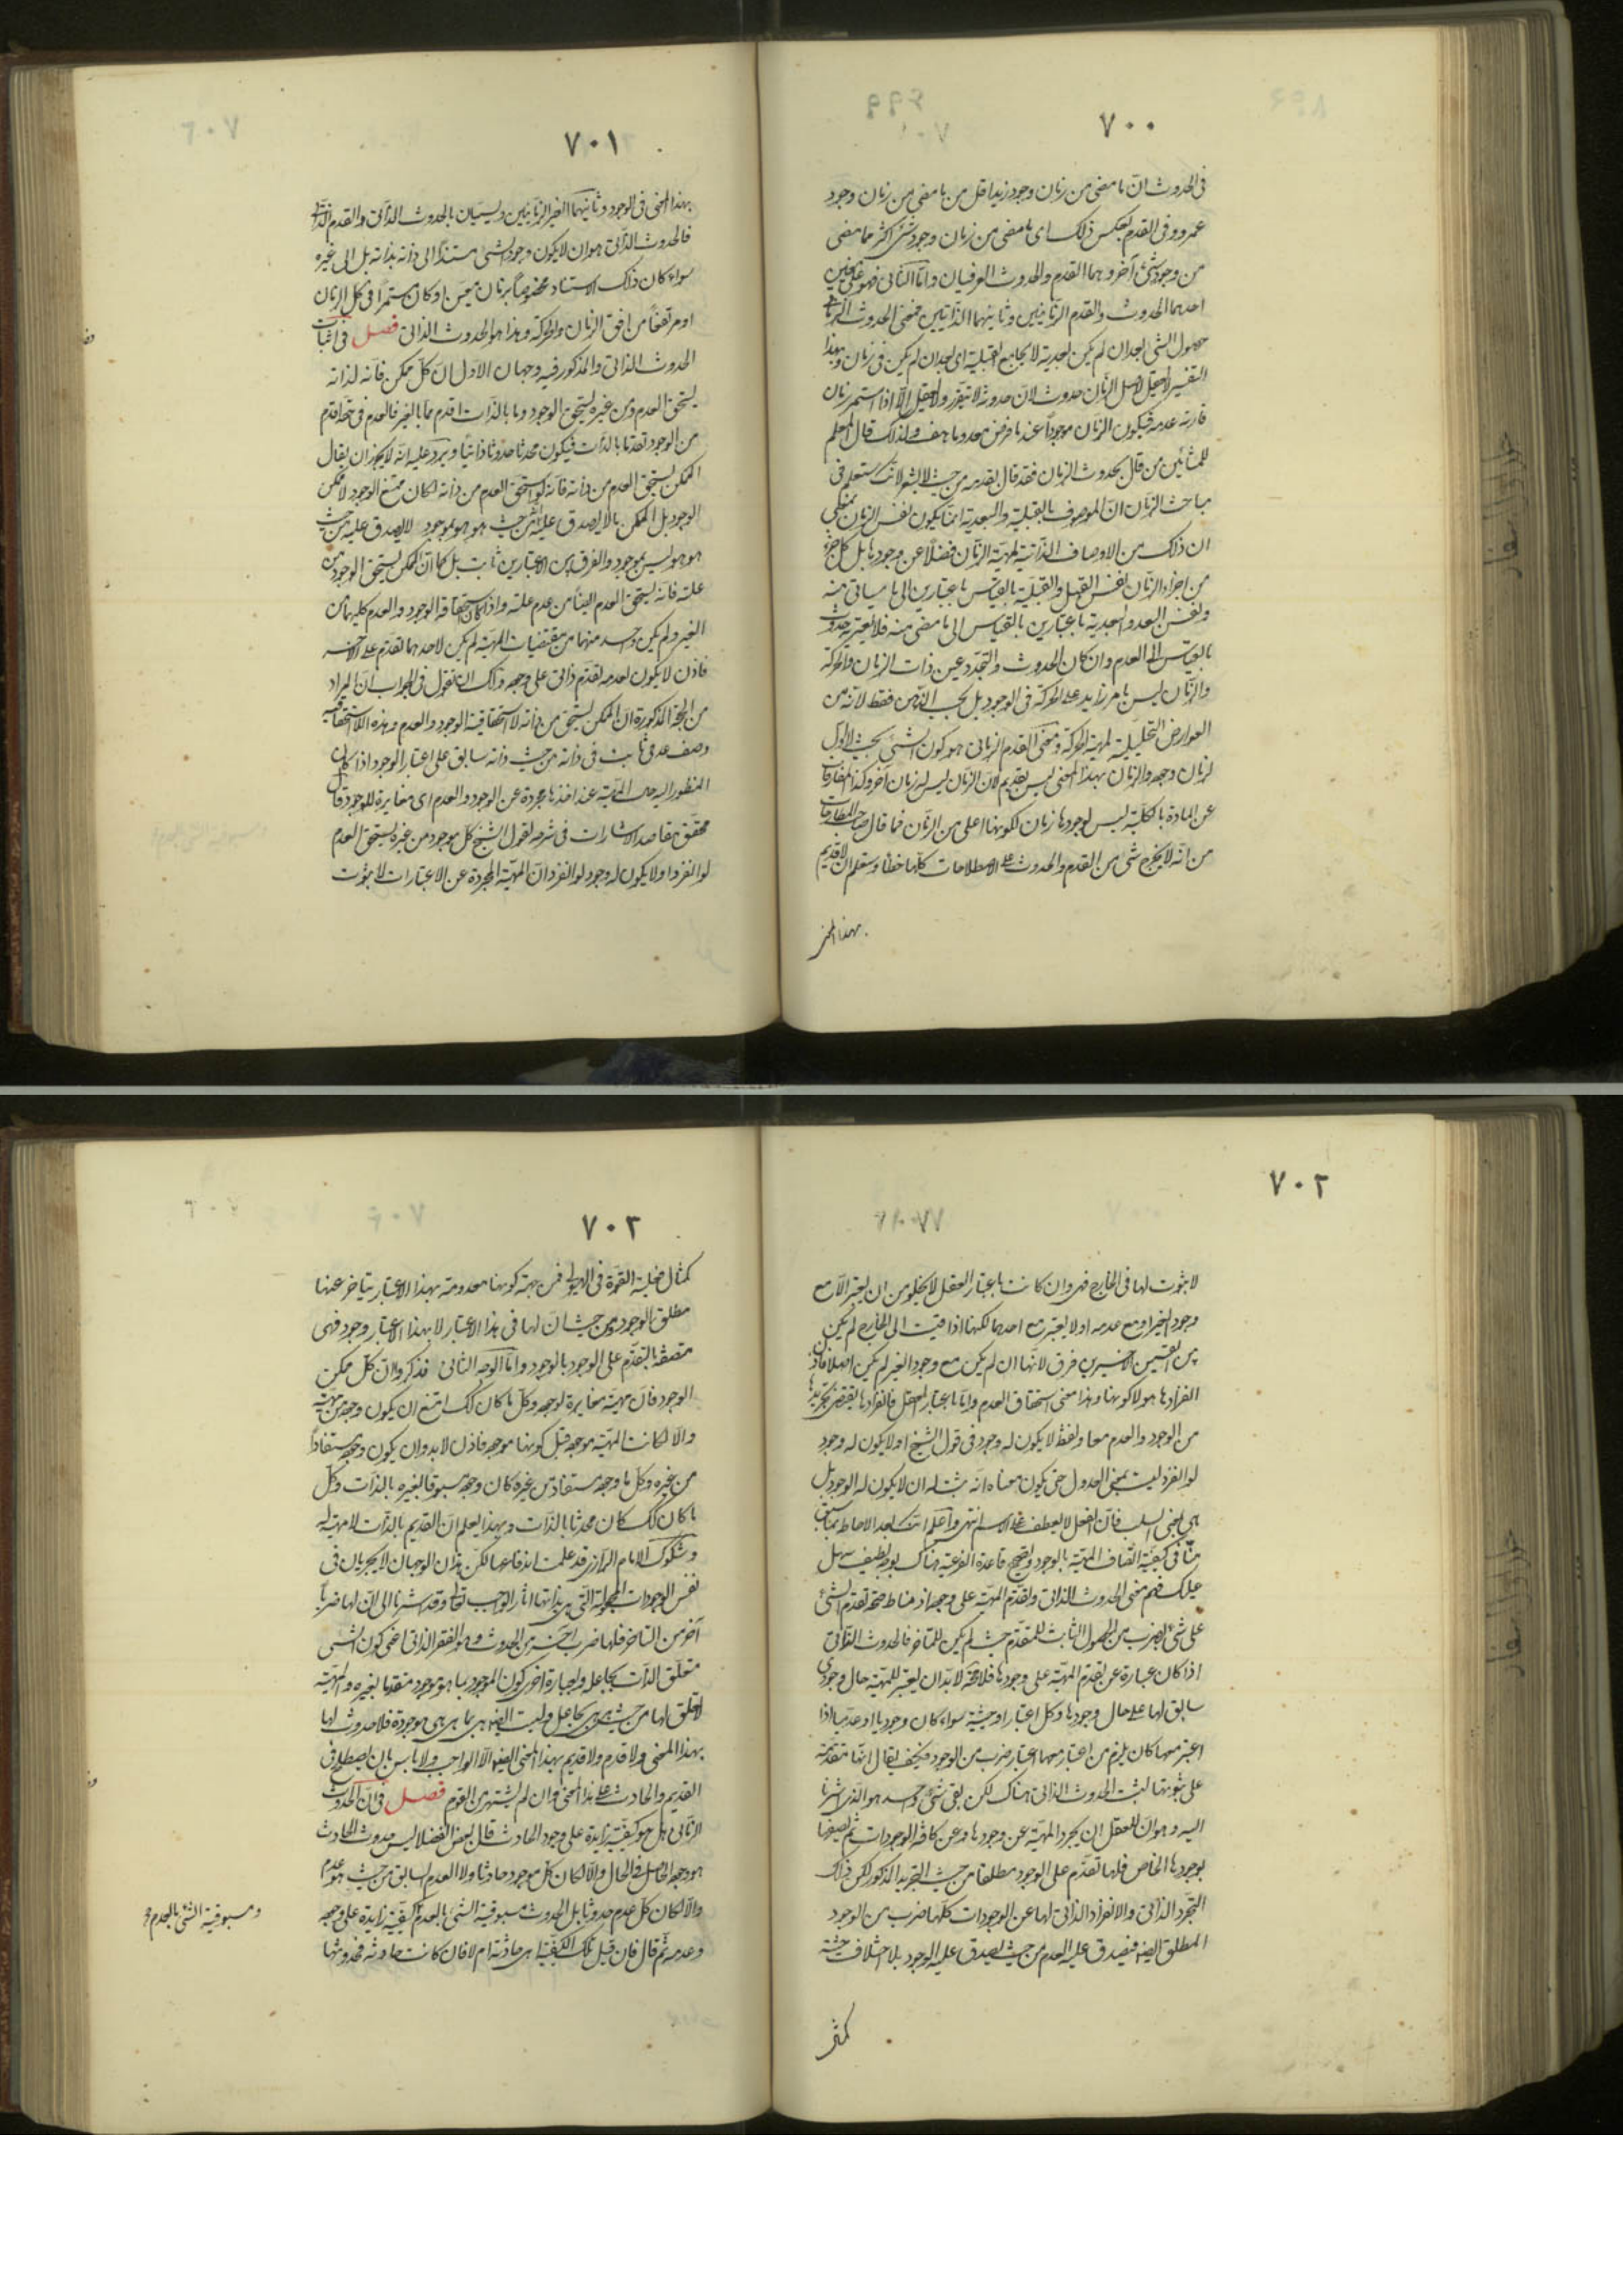 ٧٠٠
فى الحدوث انّ ما مضى من زمان وجود زيد اقل من ما مضى من زمان وجود
عمرو وفى القدم بعكس ذلك اى ما مضى من زمان وجود شئ اكثر مما مضى
من وجود شئ آخر وهما القدم والحدوث العرفيان وامّا الثانى فهو على معنيين
احدهما الحدوث والقدم الزمانيين وثانيهما الذاتيين فمعنى الحدوث الزمانى
حصول الشئ بعد ان لم يكن بعدية لا يجامع القبلية اى بعد ان لم يكن فى زمان وبهذا
التفسير لا يعقل لاصل الزمان حدوث لان حدوثه لا يتقرر ولا يعقل الّا اذا استمر زمان
قارنه عدمه فيكون الزمان موجوداً عند ما فرض معدوما هف ولذلك قال المعلم
للمشائين من قال بحدوث الزمان فقد قال بقدمه من حيث لا يشعر لانك ستعلم فى
مباحث الزمان انّ الموصوف بالقبلية والبعدية انما يكون نفس الزمان بمعنى
ان ذلك من الاوصاف الذاتية لمهية الزمان فضلا عن وجودها بل كل جزء
من اجزاء الزمان نفس القبل والقبلية بالقياس باعتبارين الى ما سياتى منه
ونفس البعد والبعدية باعتبارين بالقياس الى ما مضى منه فلا يعتريه حدوث
بالقياس الى العدم وان كان الحدوث والتجدد عين ذات الزمان والحركة
والزمان ليس بامر زايد على الحركة فى الوجود بل بحسب الذهن فقط لانه من
العوارض التحليلية لمهية الحركة ومعنى القدم الزمانى هو كون الشئ بحيث لا اول
لزمان وجوده والزمان بهذا المعنى ليس بقديم لان الزمان ليس له زمان آخر وكذا المفارقات
عن المادة بالكلية ليس لوجودها زمان لكونها اعلى من الزمان فما قال صاحب المطارحات
من انّه لا يخرج شئ من القدم والحدوث على الاصطلاحات كلها خطأ وستعلم ان لا قديم
بهذا المعنى
٧٠١
بهذا المعنى فى الوجود وثانيهما الغير الزمانيين ويسميان بالحدوث الذاتى والقدم الذاتى
فالحدوث الذاتى هو ان لا يكون وجود الشئ مستندا الى ذاته بذاته بل الى غيره
سواء كان ذلك الاستناد مخصوصاً بزمان معيّن او كان مستمرا فى كل الزمان
او مرتفعا من افق الزمان والحركة وهذا هو الحدوث الذاتى فصل فى اثبات
الحدوث الذاتى والمذكور فيه وجهان الاول ان كلّ ممكن فانّه لذاته
يستحق العدم ومن غيره يستحق الوجود وما بالذات اقدم مما بالغير فالعدم فى حقه اقدم
من الوجود تقدما بالذات فيكون محدثا حدوثا ذاتيا ويرد عليه انّه لا يجوز ان يقال
الممكن يستحق العدم من ذاته فانه لو استحق العدم من ذاته لكان ممتنع الوجود لا ممكن
الوجود بل الممكن ما لا يصدق عليه انّه من حيث هو هو موجود لا يصدق عليه من حيث
هو هو ليس بموجود والفرق بين الاعتبارين ثابت بل كما انّ الممكن يستحق الوجود من
علته فانه يستحق العدم ايضا من عدم علته واذا كان استحقاقه الوجود والعدم كليهما من
الغير ولم يكن واحد منهما من مقتضيات المهية لم يكن لاحدهما تقدم على الآخر
فاذن لا يكون لعدمه تقدم ذاتى على وجوده ولك ان تقول فى الجواب انّ المراد
من الحجة المذكورة ان الممكن يستحق من ذاته لا استحقاقية الوجود والعدم وهذه اللا استحقاقية
وصف عدمى ثابت فى ذاته من حيث ذاته سابق على اعتبار الوجود اذا كان
المنظور اليه حال المهية عند اخذها مجردة عن الوجود والعدم اى مغايرة للوجود قال
محقق مقاصد الاشارات فى شرحه لقول الشيخ كل موجود من غيره يستحق العدم
لو انفرد او لا يكون له وجود لو انفرد انّ المهية المجردة عن الاعتبارات لا ثبوت
٧٠٢
لا ثبوت لها فى الخارج فهى وان كانت باعتبار العقل لا يخلو من ان يعتبر الّا مع
وجود الغير او مع عدمه او لا يعتبر مع احدهما لكنها اذا قيست الى الخارج لم يكن
بين القسمين الاخيرين فرق لانّها ان لم يكن مع وجود الغير لم يكن اصلا فاذن
انفرادها هو لا كونها وهذا معنى استحقاق العدم وامّا باعتبار العقل فانفرادها يقتضى تجريدها
من الوجود والعدم معا ولفظ لا يكون له وجود فى قول الشيخ او لا يكون له وجود
لو انفرد ليست بمعنى العدول حتى يكون معناه انّه يثبت له ان لا يكون له الوجود بل
هى بمعنى السلب فانّ الفعل لا يعطف على الاسم انتهى واعلم انك بعد الاحاطة بما سبق
منّا فى كيفية اتّصاف المهية بالوجود وتصحيح قاعدة الفرعية هناك بوجه لطيف سهل
عليك فهم معنى الحدوث الذاتى وتقدم المهية على وجودها مناط صحة تقدم الشئ
على شئ بضرب من الحصول الثابت للمتقدم حيث لم يكن للمتاخر فالحدوث الذاتى
اذا كان عبارة عن تقدم المهية على وجودها فلا محة لا بدّ ان يعتبر للمهية حال وجودى
سابق لها على حال وجودها وكل اعتبار او حيثية سواء كان وجوديا او عدميا اذا
اعتبر معها كان يلزم من اعتباره معها اعتبار ضرب من الوجود فكيف يقال انها متقدمة
على ثبوتها ليثبت الحدوث الذاتى هناك لكن بقى شئ واحد هو الذى اشرنا
اليه وهو ان للعقل ان يجرد المهية عن وجودها وعن كافة الوجودات ثم يصفها
بوجودها الخاص فلها تقدم على الوجود مطلقا من حيث التجريد المذكور لكن ذلك
التجرد الذاتى والانفراد الذاتى لها عن الوجودات كلها ضرب من الوجود
المطلق ايضا فيصدق عليه العدم من حيث يصدق عليه الوجود بلا اختلاف حيثية
كمثل
٧٠٣
كمثال فعلية القوة فى الهيولى فمن جهة كونها معدومة بهذا الاعتبار يتاخر عنها
مطلق الوجود ومن حيث ان لها فى هذا الاعتبار لا بهذا الاعتبار وجود فهى
متصفة بالتقدم على الوجود بالوجود وامّا الوجه الثانى فذكروا ان كلّ ممكن
الوجود فانّ مهيته مغايرة لوجوده وكل ما كان كذلك امتنع ان يكون وجوده من مهيته
والا لكانت المهية موجودة قبل كونها موجودة فاذن لا بد وان يكون وجوده مستفاداً
من غيره وكل ما وجوده مستفاد من غيره كان وجوده مسبوقا بغيره بالذات وكلّ
ما كان كذلك كان محدثا بالذات وبهذا يعلم انّ القديم بالذات لا مهية له
وشكوك الامام الرازى قد علمت اندفاعها لكن هذان الوجهان لا يجريان فى
نفس الوجودات المجعولة التى هى بذاتها اثار الواجب تعالى وقد اشرنا الى انّ لها ضربا
آخر من التاخر فلها ضرب آخر من الحدوث وهو الفقر الذاتى اعنى كون الشئ
متعلق الذات بجاعله وبعبارة اخرى كون الموجود بما هو موجود متقدما بغيره والمهية
لا تعلق لها من حيث هى هى بجاعل وليست ايضا هى بما هى هى موجودة فلا حدوث لها
بهذا المعنى ولا قدم ولا قديم بهذا المعنى ايضا الّا الواجب ولا باس بان يصطلح فى
القديم والحادث على هذا المعنى وان لم يشتهر من القوم فصل فى انّ الحدوث
الزمانى هل هو كيفية زايدة على وجود الحادث قال بعض الفضلا ليس حدوث الحادث
هو وجوده الحاصل فى الحال والّا لكان كل موجود حادثا ولا العدم السابق من حيث هو عدم
والّا لكان كل عدم حدوثا بل الحدوث مسبوقية الشئ بالعدم كيفية زايدة على وجوده
وعدمه ثم قال فان قيل تلك الكيفية اهى حادثة ام لا فان كانت حادثة فحدوثها
ومسبوقية الشئ بالعدم